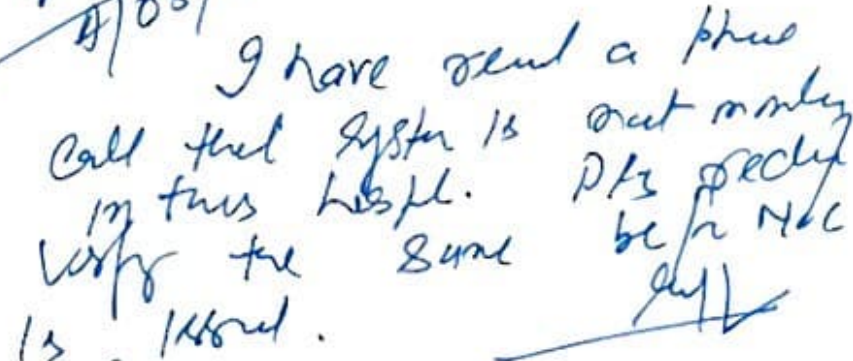 I have recd a phone
call that system is not working
in this hospl. Plz
verify the same before NOC
is issued.